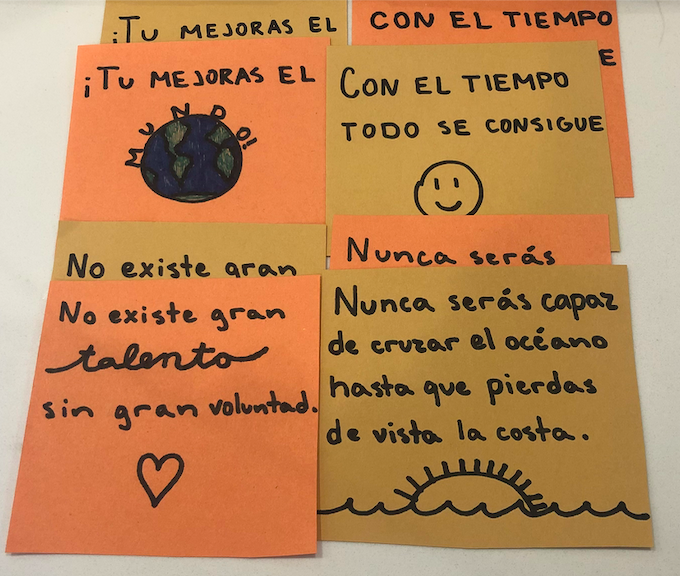 ¡TU MEJORAS EL
CON EL TIEMPO
E
¡TU MEJORAS EL
MUNDO!
CON EL TIEMPO
TODO SE CONSIGUE
No existe gran
Nunca serás
No existe gran
talento
sin gran voluntad.
Nunca serás capaz
de cruzar el océano
hasta que pierdas
de vista la costa.